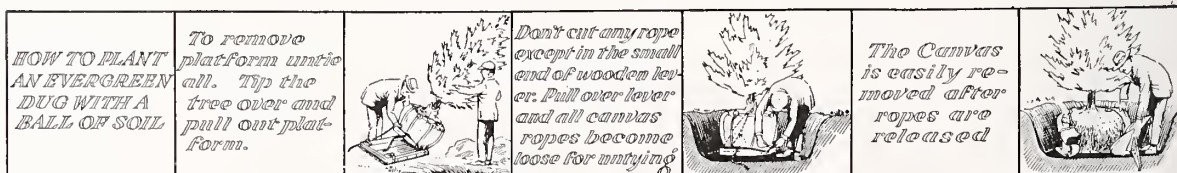 HOW TO PLANT
AN EVERGREEN
DUG WITH A
BALL OF SOIL
To remove
platform untie
all. Tip the
tree over and
pull out plat-
form.
Don't cut any rope
except in the small
end of wooden lev-
er. Pull over lever
and all canvas
ropes become
loose for untying
The Canvas
is easily re-
moved after
ropes are
released